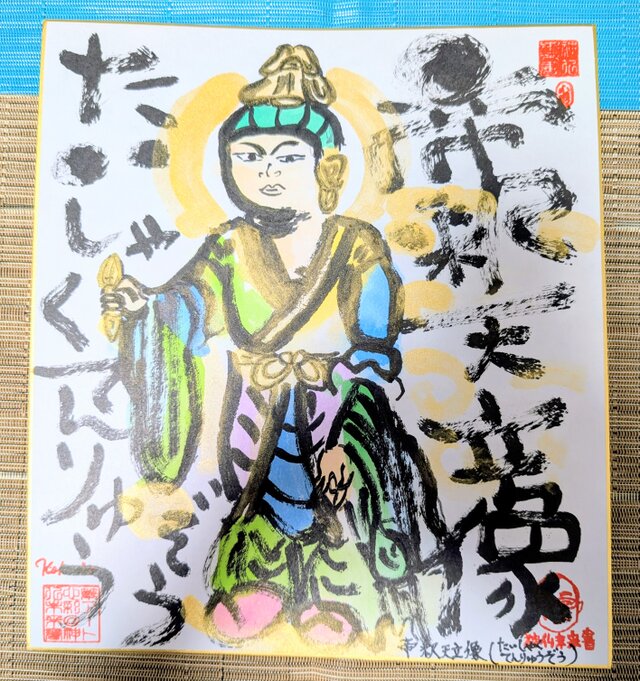 帝釈天立像
たいしゃくてんりゅうぞう
帝釈天立像(たいしゃく
てんりゅうぞう)